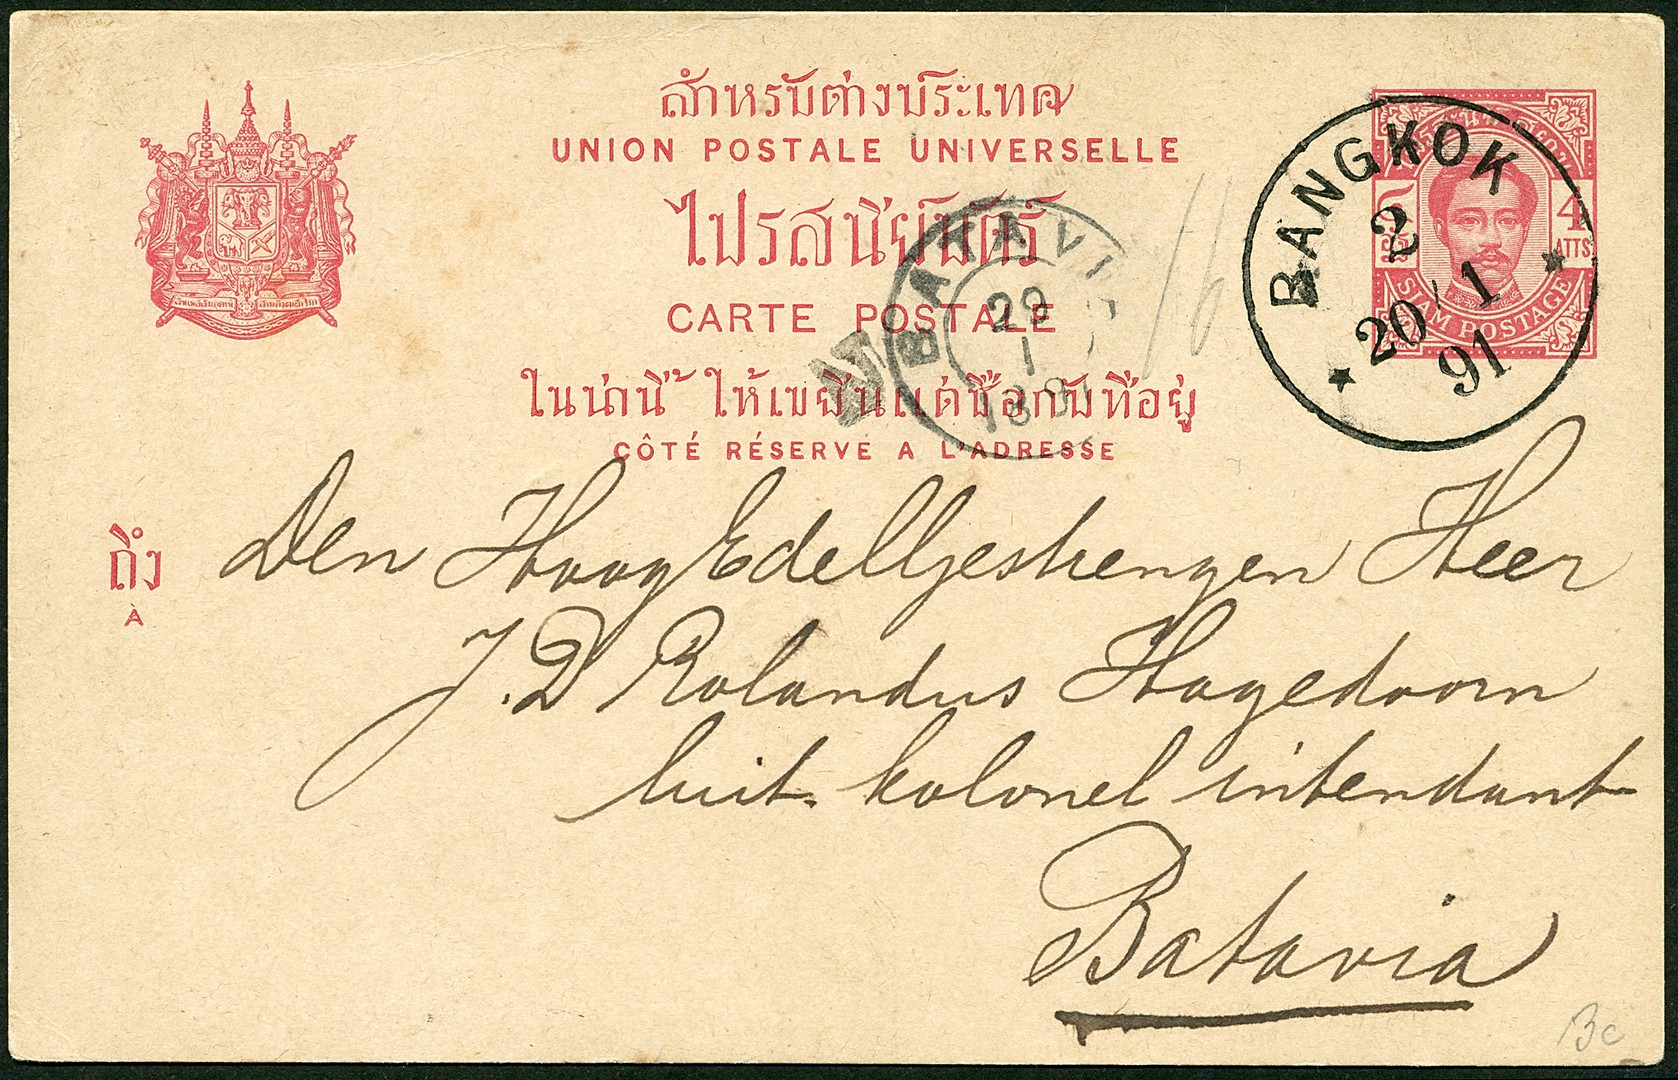 สำหรับต่างประเทศ
UNION POSTALE UNIVERSELLE
ไปรสนียบัตร์
CARTE POSTALE
ในน่านี้ ให้เขียนแต่ชื่อกับที่อยู่
CÔTÉ RÉSERVÉ A L'ADRESSE
BANGKOK
2
20 1
91
4
ATTS
SIAM POSTAGE
BATAVI
29
1
1891
N
ถึง
À
Den HoogEdelGestrengen Heer
J. D Rolandus Hagedoorn
luit. kolonel intendant
Batavia
Bc